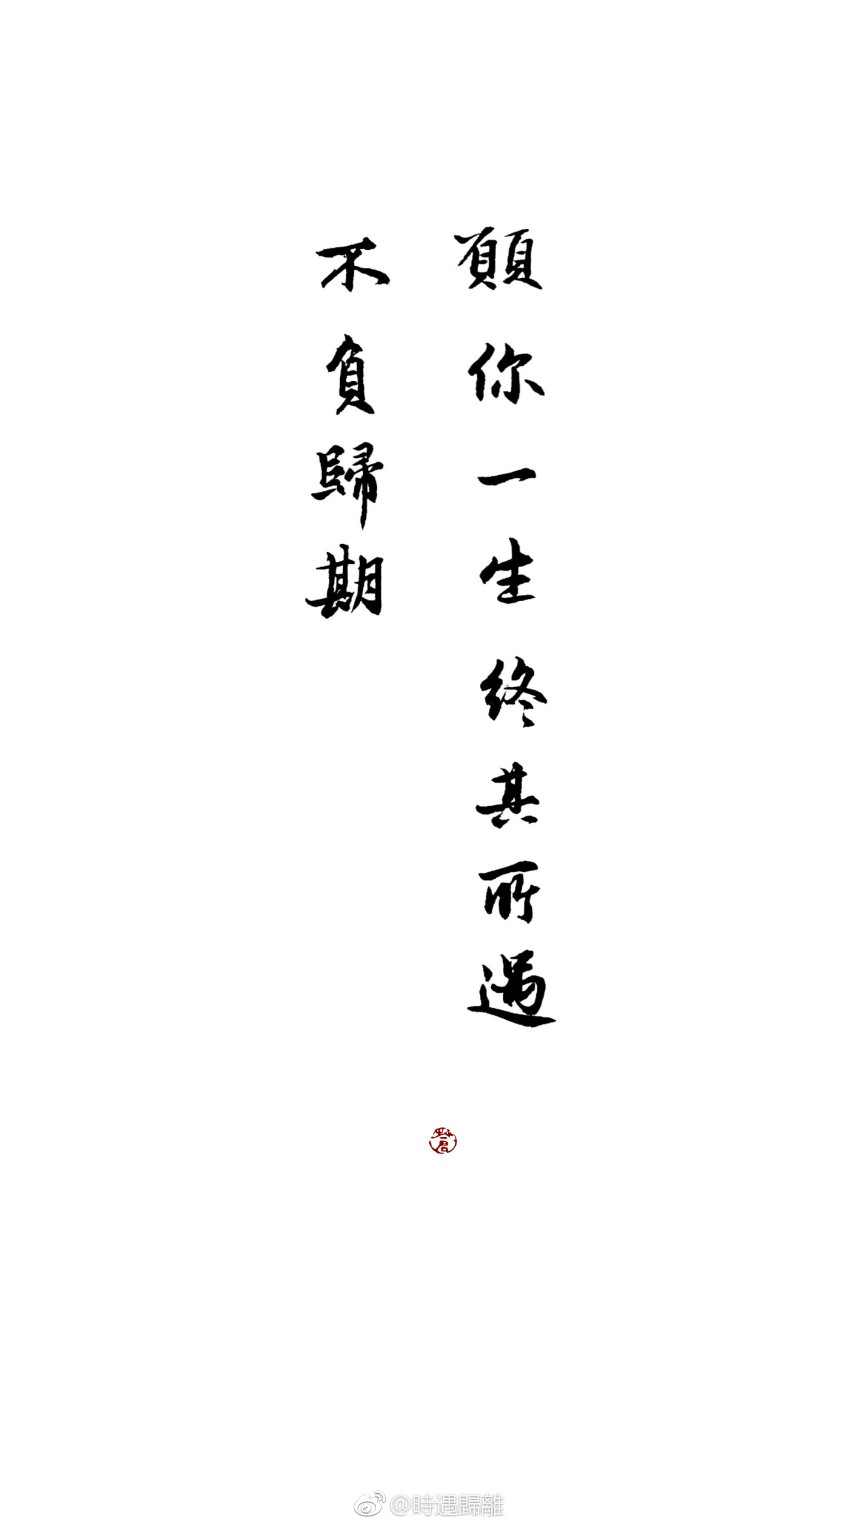 願你一生終其所遇
不負歸期
@時遇歸離